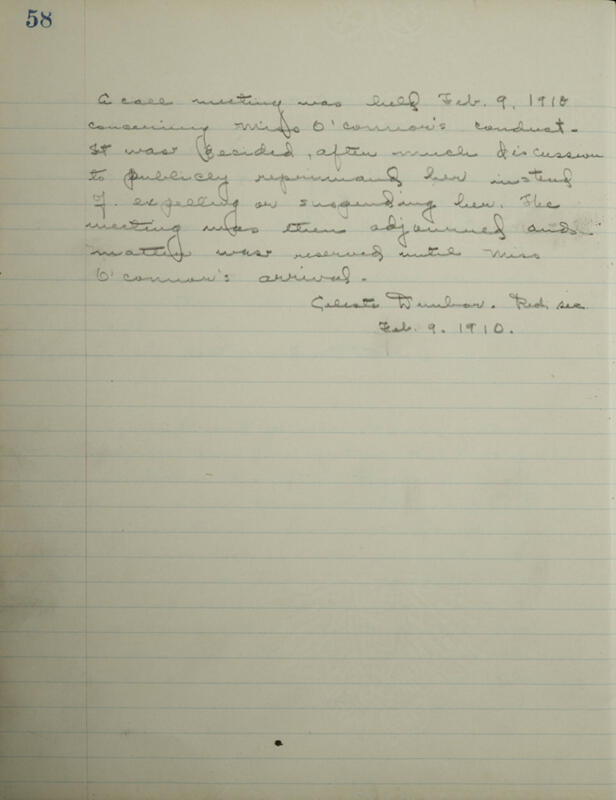 58
A call meeting was held Feb. 9, 1910
concerning Miss O'connor's conduct.
It was decided, after much discussion
to publicly reprimand her instead
of expelling or suspending her. The
meeting was then adjourned and
matter was reserved until Miss
O'connor's arrival.
Celeste Dunbar. Red. sec
Feb. 9. 1910.